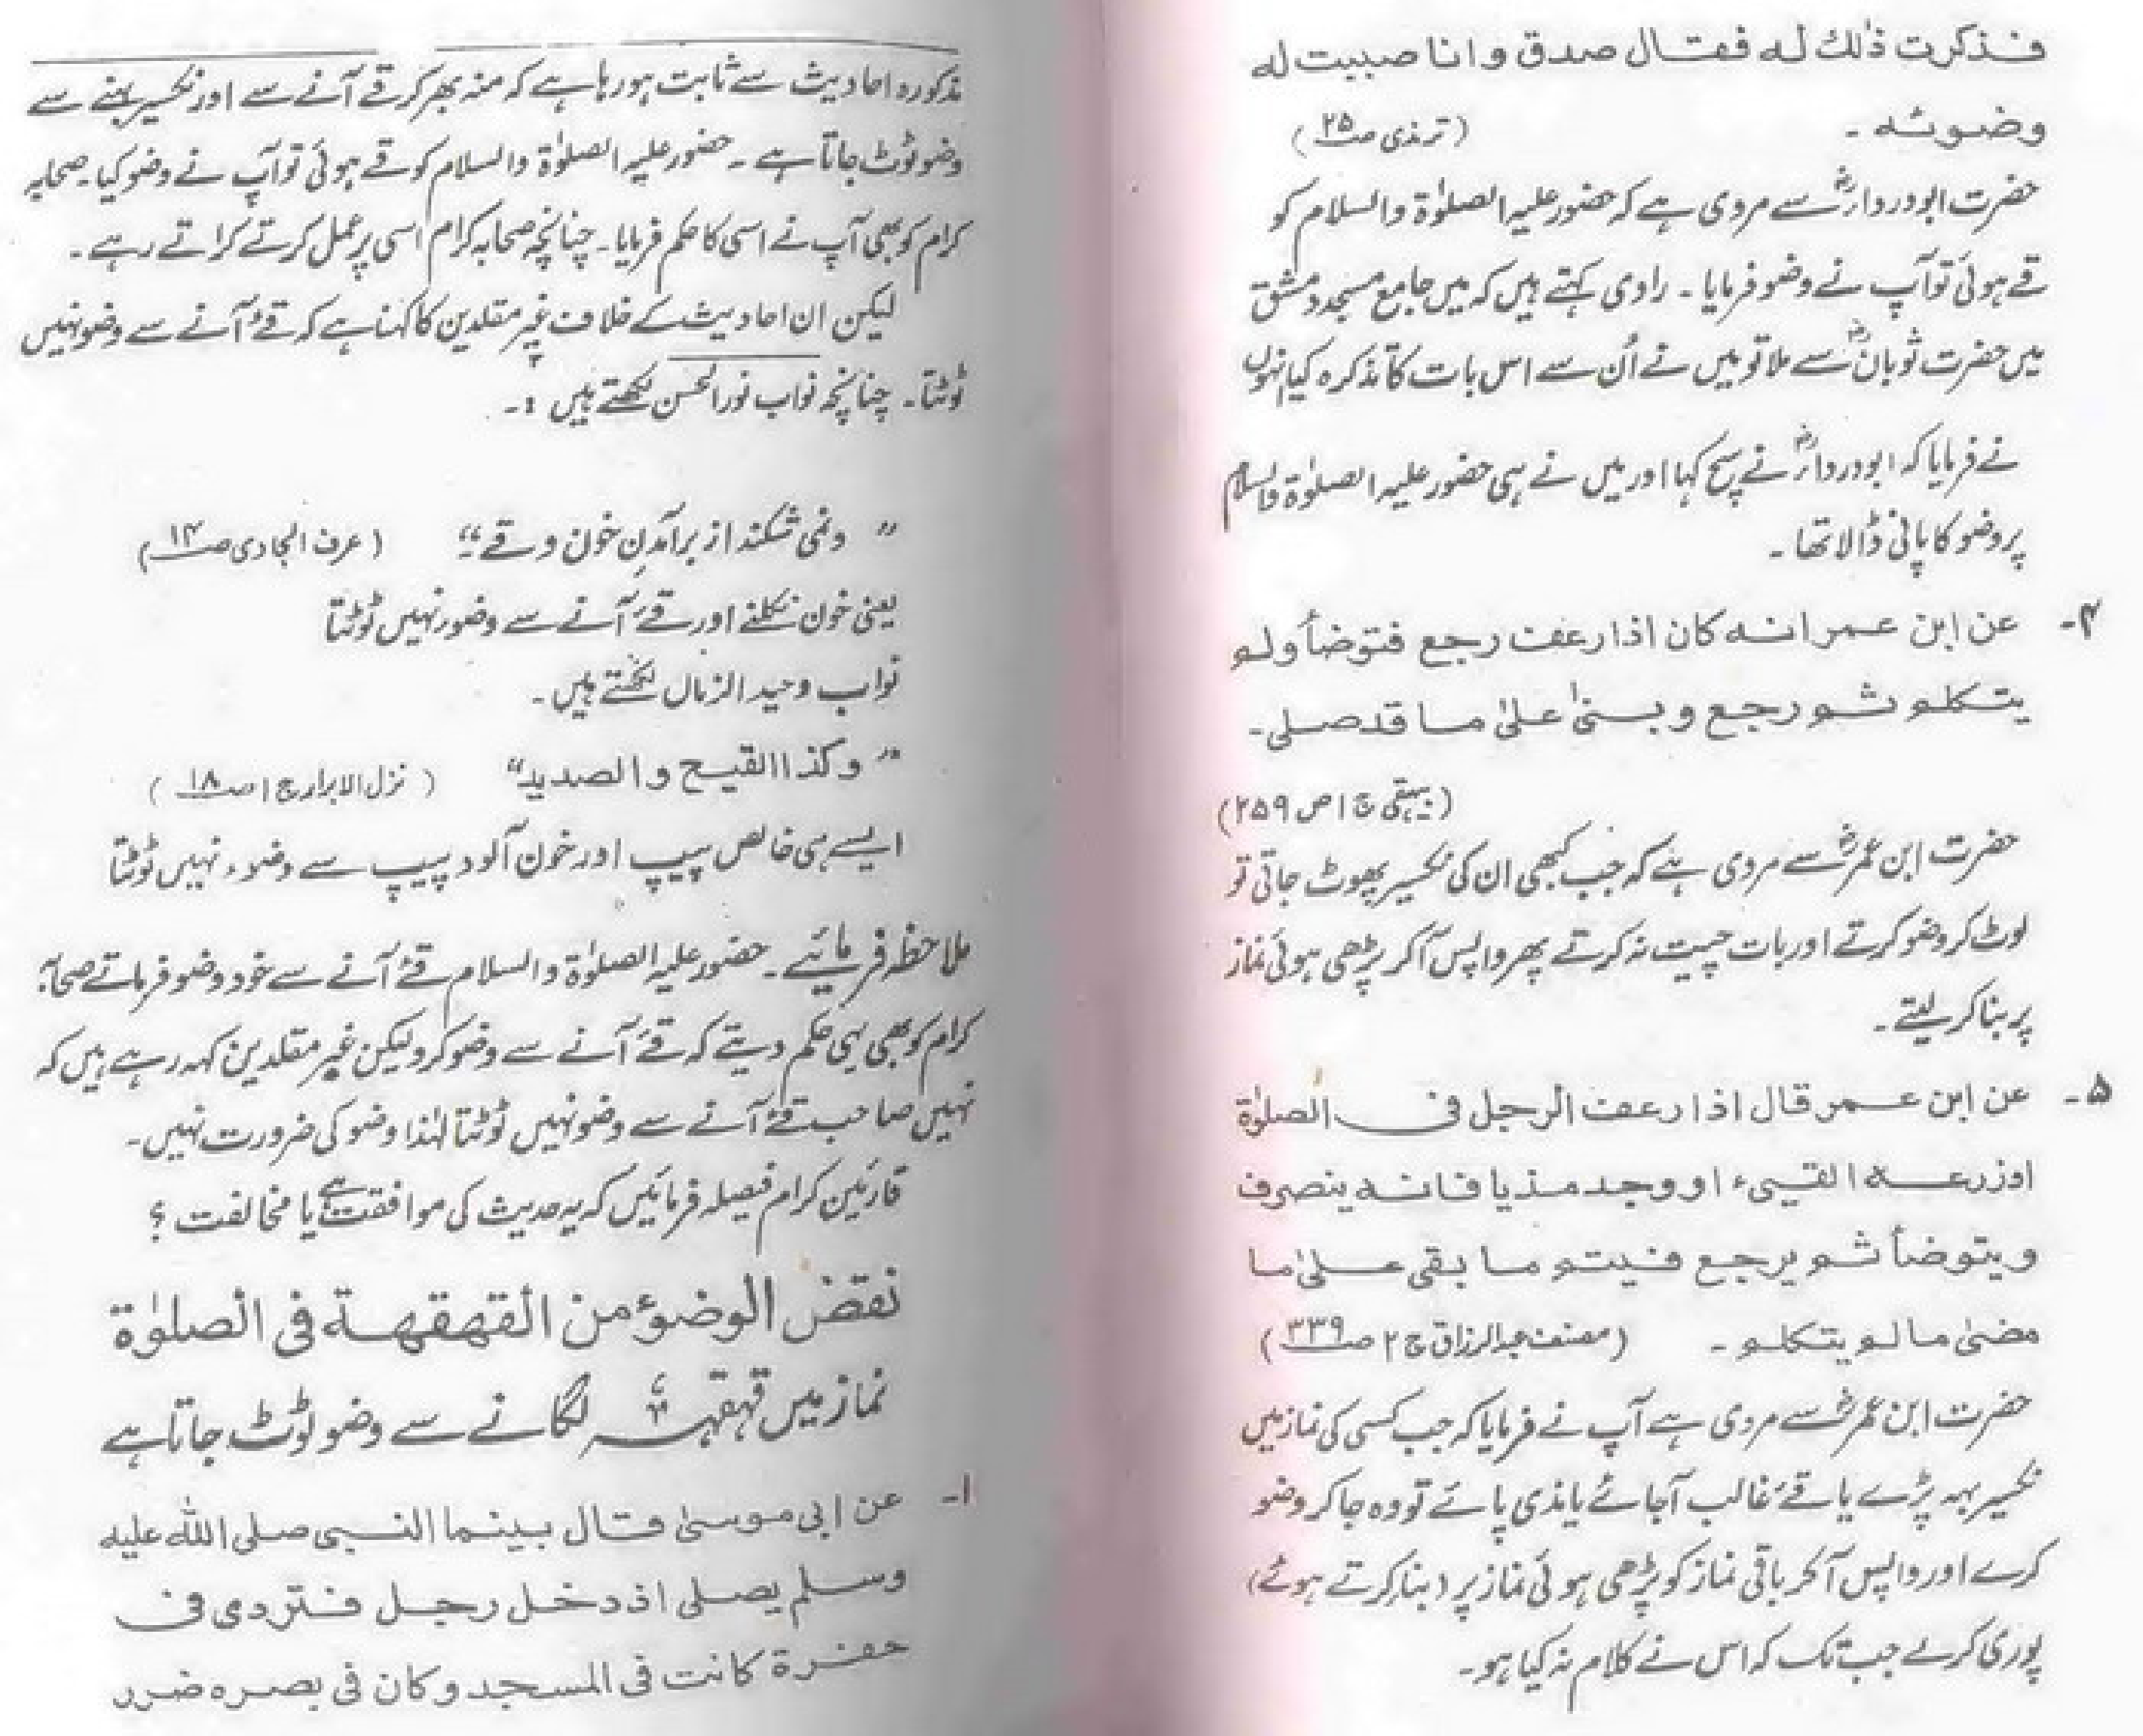 فذكرت ذٰلك له فقال صدق وانا صببت له
وضوئه ۔ (ترمذی ص۲۵)
حضرت ابودرداءؓ سے مروی ہے کہ حضور علیہ الصلوٰۃ والسلام کو
قے ہوئی تو آپ نے وضو فرمایا ۔ راوی کہتے ہیں کہ میں جامع مسجد دمشق
میں حضرت ثوبانؓ سے ملا تو میں نے اُن سے اس بات کا تذکرہ کیا انہوں
نے فرمایا کہ ابودرداءؓ نے سچ کہا اور میں نے ہی حضور علیہ الصلوٰۃ والسلام
پر وضو کا پانی ڈالا تھا ۔
۴۔ عن ابن عمر انه كان اذا رعف رجع فتوضأ ولم
يتكلم ثم رجع وبنىٰ علىٰ ما قد صلى۔
(بیہقی ج۱ ص۲۵۹)
حضرت ابن عمرؓ سے مروی ہے کہ جب کبھی ان کی نکسیر پھوٹ جاتی تو
لوٹ کر وضو کرتے اور بات چیت نہ کرتے پھر واپس آکر پڑھی ہوئی نماز
پر بنا کر لیتے ۔
۵۔ عن ابن عمر قال اذا رعف الرجل فى الصلوٰة
او ذرعه القيىء او وجد مذيا فانه ينصرف
ويتوضأ ثم يرجع فيتم ما بقى علىٰ ما
مضىٰ ما لم يتكلم ۔ (مصنف عبدالرزاق ج۲ ص۳۳۹)
حضرت ابن عمرؓ سے مروی ہے آپ نے فرمایا کہ جب کسی کی نماز میں
نکسیر بہہ پڑے یا قے غالب آجائے یا مذی پائے تو وہ جا کر وضو
کرے اور واپس آکر باقی نماز کو پڑھی ہوئی نماز پر (بنا کرتے ہوئے)
پوری کرلے جب تک کہ اس نے کلام نہ کیا ہو۔
مذکورہ احادیث سے ثابت ہو رہا ہے کہ منہ بھر کر قے آنے سے اور نکسیر بہنے سے
وضو ٹوٹ جاتا ہے ۔ حضور علیہ الصلوٰۃ والسلام کو قے ہوئی تو آپ نے وضو کیا۔ صحابہ
کرام کو بھی آپ نے اسی کا حکم فرمایا۔ چنانچہ صحابہ کرام اسی پر عمل کرتے کراتے رہے ۔
لیکن ان احادیث کے خلاف غیر مقلدین کا کہنا ہے کہ قئے آنے سے وضو نہیں
ٹوٹتا۔ چنانچہ نواب نورالحسن لکھتے ہیں :۔
" ونمی شکند از برآمدن خون وقے " (عرف الجادی ص۱۴)
یعنی خون نکلنے اور قئے آنے سے وضو نہیں ٹوٹتا
نواب وحید الزماں لکھتے ہیں ۔
" وكذا القيح والصديد" (نزل الابرار ج۱ ص۱۸)
ایسے ہی خالص پیپ اور خون آلود پیپ سے وضوء نہیں ٹوٹتا
ملاحظہ فرمائیے ۔ حضور علیہ الصلوٰۃ والسلام قئے آنے سے خود وضو فرماتے صحابہ
کرام کو بھی یہی حکم دیتے کہ قئے آنے سے وضو کرو لیکن غیر مقلدین کہہ رہے ہیں کہ
نہیں صاحب قئے آنے سے وضو نہیں ٹوٹتا لہٰذا وضو کی ضرورت نہیں۔
قارئین کرام فیصلہ فرمائیں کہ یہ حدیث کی موافقت ہے یا مخالفت ؟
نقض الوضوء من القهقهة فى الصلوٰة
نماز میں قہقہہ لگانے سے وضو ٹوٹ جاتا ہے
۱۔ عن ابى موسىٰ قال بينما النبى صلى الله عليه
وسلم يصلى اذ دخل رجل فتردى فى
حفرة كانت فى المسجد وكان فى بصره ضرر